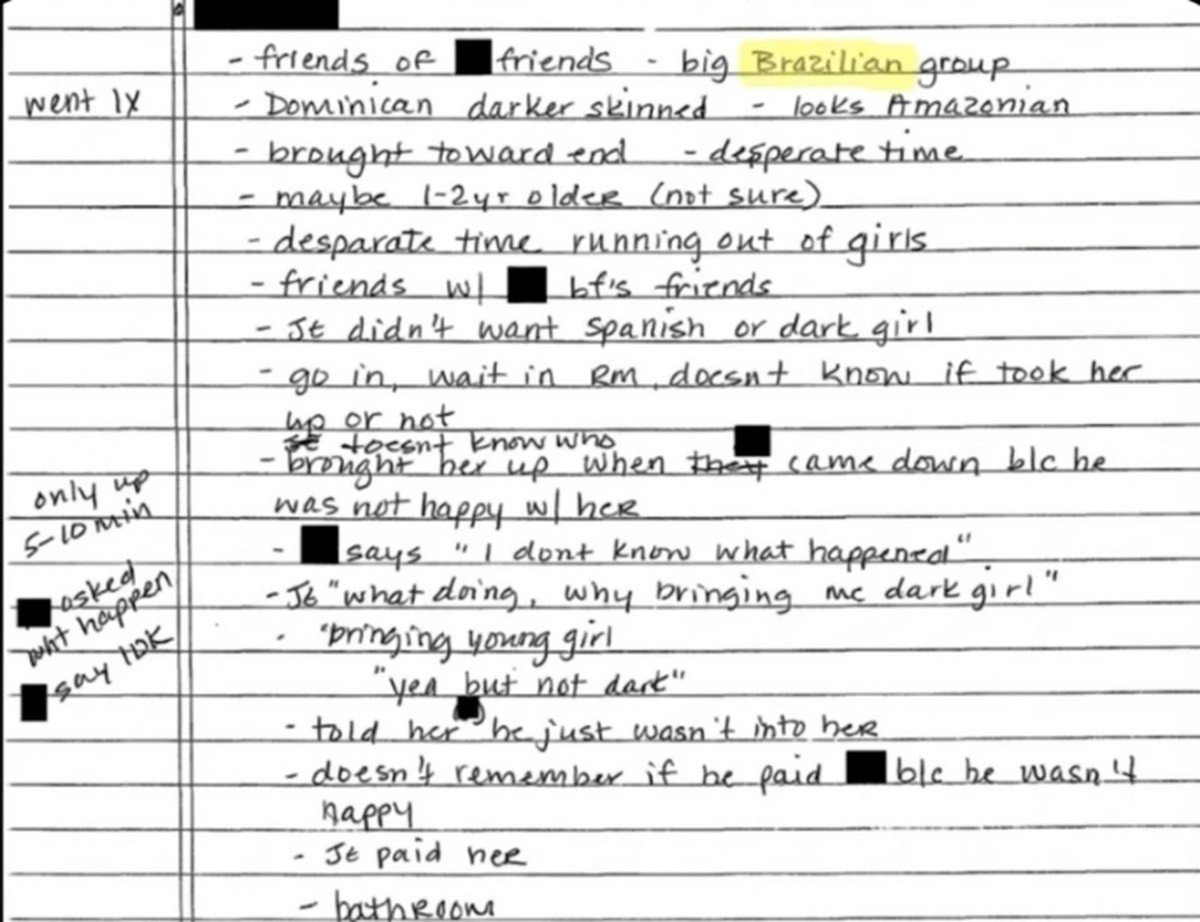 - friends of friends - big Brazilian group
went 1x
- Dominican darker skinned - looks Amazonian
- brought toward end - desperate time
- maybe 1-2yr older (not sure)
- desparate time running out of girls
- friends w/ bf's friends
- JE didn't want spanish or dark girl
- go in, wait in Rm, doesnt know if took her
up or not
JE doesnt know who
- brought her up when they came down b/c he
was not happy w/ her
only up
5-10 min
- says "I dont know what happened"
asked
wht happen
say IDK
- JE "what doing, why bringing me dark girl"
- "bringing young girl
"yea but not dark"
- told her he just wasn't into her
- doesn't remember if he paid b/c he wasn't
happy
- JE paid her
- bathroom